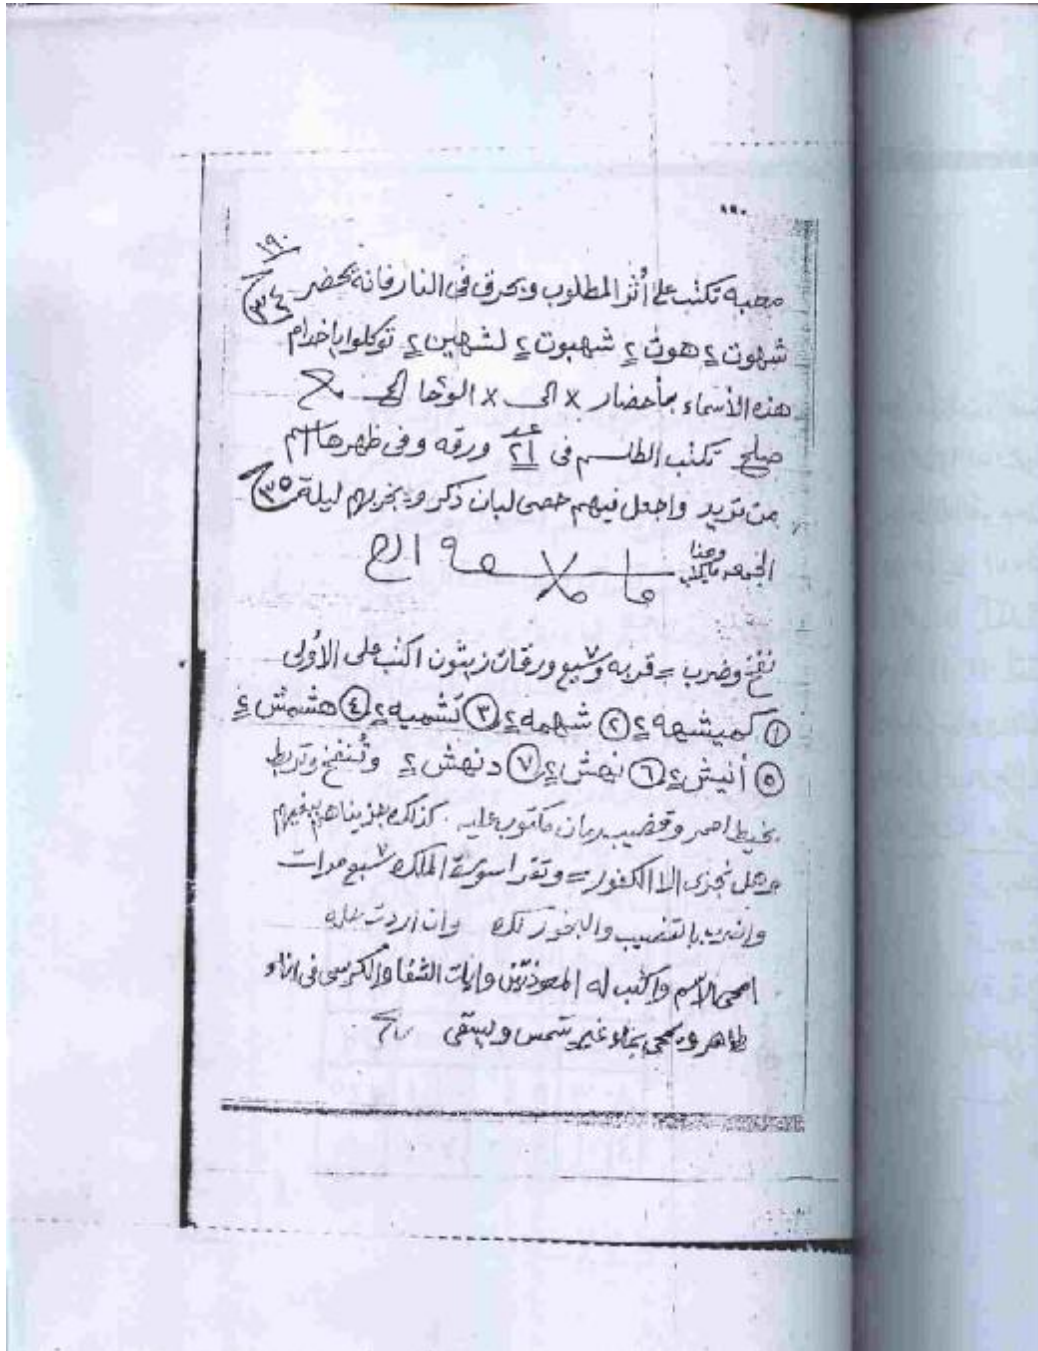 ١٩٠
١٩٠
محبه تكتب على أثر المطلوب ويحرق فى النار فانه يحضر
٣٤
شهوت ٤ هوت ٤ شهبوت ٤ لشهين ٤ توكلوا ياخدام
هذه الأسماء بأحضار × الى × الوحا الخ
صلح تكتب الطلسم فى عدد ٢١ ورقه وفى ظهرها اسم
من تريد واجعل فيهم حصى لبان ذكر ويبخربهم ليلة
٣٥
الجمعه وهذا مايكتب
نفخ وضرب = قربه وسبع ٧ ورقات زيتون اكتب على الأولى
١ كميشهه ٤ ٢ شهمه ٤ ٣ كشميه ٤ ٤ هشمش ٤
٥ أنيش ٤ ٦ نهش ٤ ٧ دنهش ٤ وتنفخ وتربط
بخيط احمر وقضيب رمان مكتوب عليه كذلك جزيناهم ببغيهم
وهل نجزى الا الكفور = وتقرا سورة الملك سبع ٧ مرات
واضربه بالقضيب والبخور لك وان اردت
امحى الاسم واكتب له المعوذتين وايات الشفا والكرسى فى اناء
طاهر ويمحى بماء غير شمس ويسقى